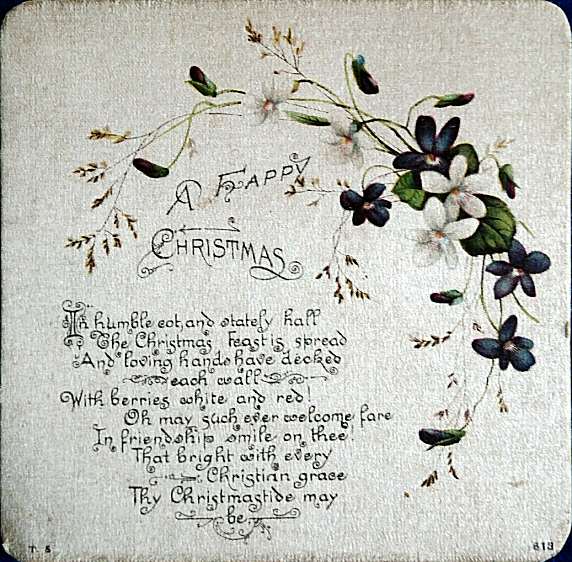 A HAPPY
CHRISTMAS
In humble cot, and stately hall
The Christmas feast is spread
And loving hands have decked
each wall
With berries white and red!
Oh may such ever welcome fare
In friendship smile on thee!
That bright with every
Christian grace
Thy Christmastide may
be.
T. S
613